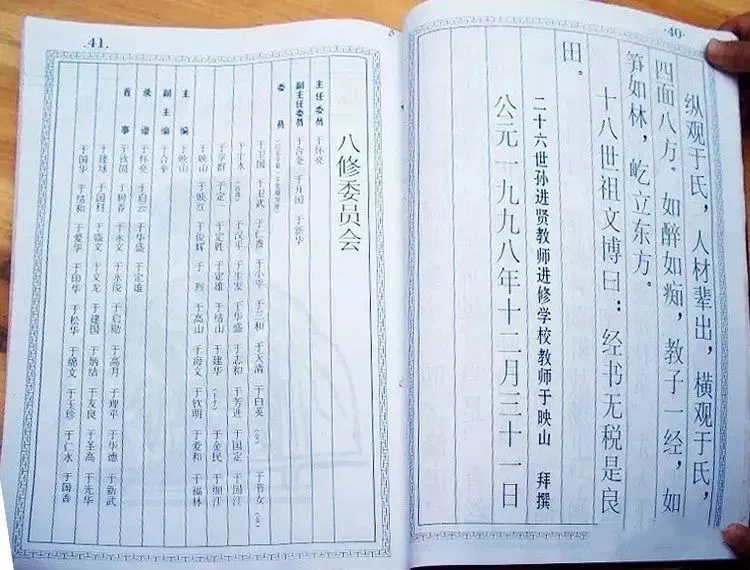 ·40·
纵观于氏，人材辈出，横观于氏，
四面八方。如醉如痴，教子一经，如
笋如林，屹立东方。
十八世祖文博曰：经书无税是良
田。
二十六世孙进贤教师进修学校教师于映山 拜撰
公元一九九八年十二月三十一日
.41.
八修委员会
主任委员 于怀亮
副主任委员 于合奎 于开国 于新华
委员
于卫国 于卫武 于仁香 于小平 于三和 于天清 于白英（女） 于竹女（女）
于生水 于汉平 于生发 于华盛 于志和 于芳进 于国定 于国江
于学群 于定 于定胜 于定雄 于结山 于建华 于金民 于细江
于映山 于映万 于俊辉 于烈 于高山 于海文 于钦明 于爱和 于福林
主编 于映山
副主编 于合奎
录谱 于怀亮 于启云 于华盛 于定雄
首事 于政国 于树春 于永文 于永俊 于启勋 于高月 于理平 于华德 于新武
于建球 于国科 于盛文 于义龙 于建国 于炳结 于友良 于圣高 于先华
于国华 于结和 于爱华 于印华 于松华 于锦文 于玉珍 于仁水 于国香